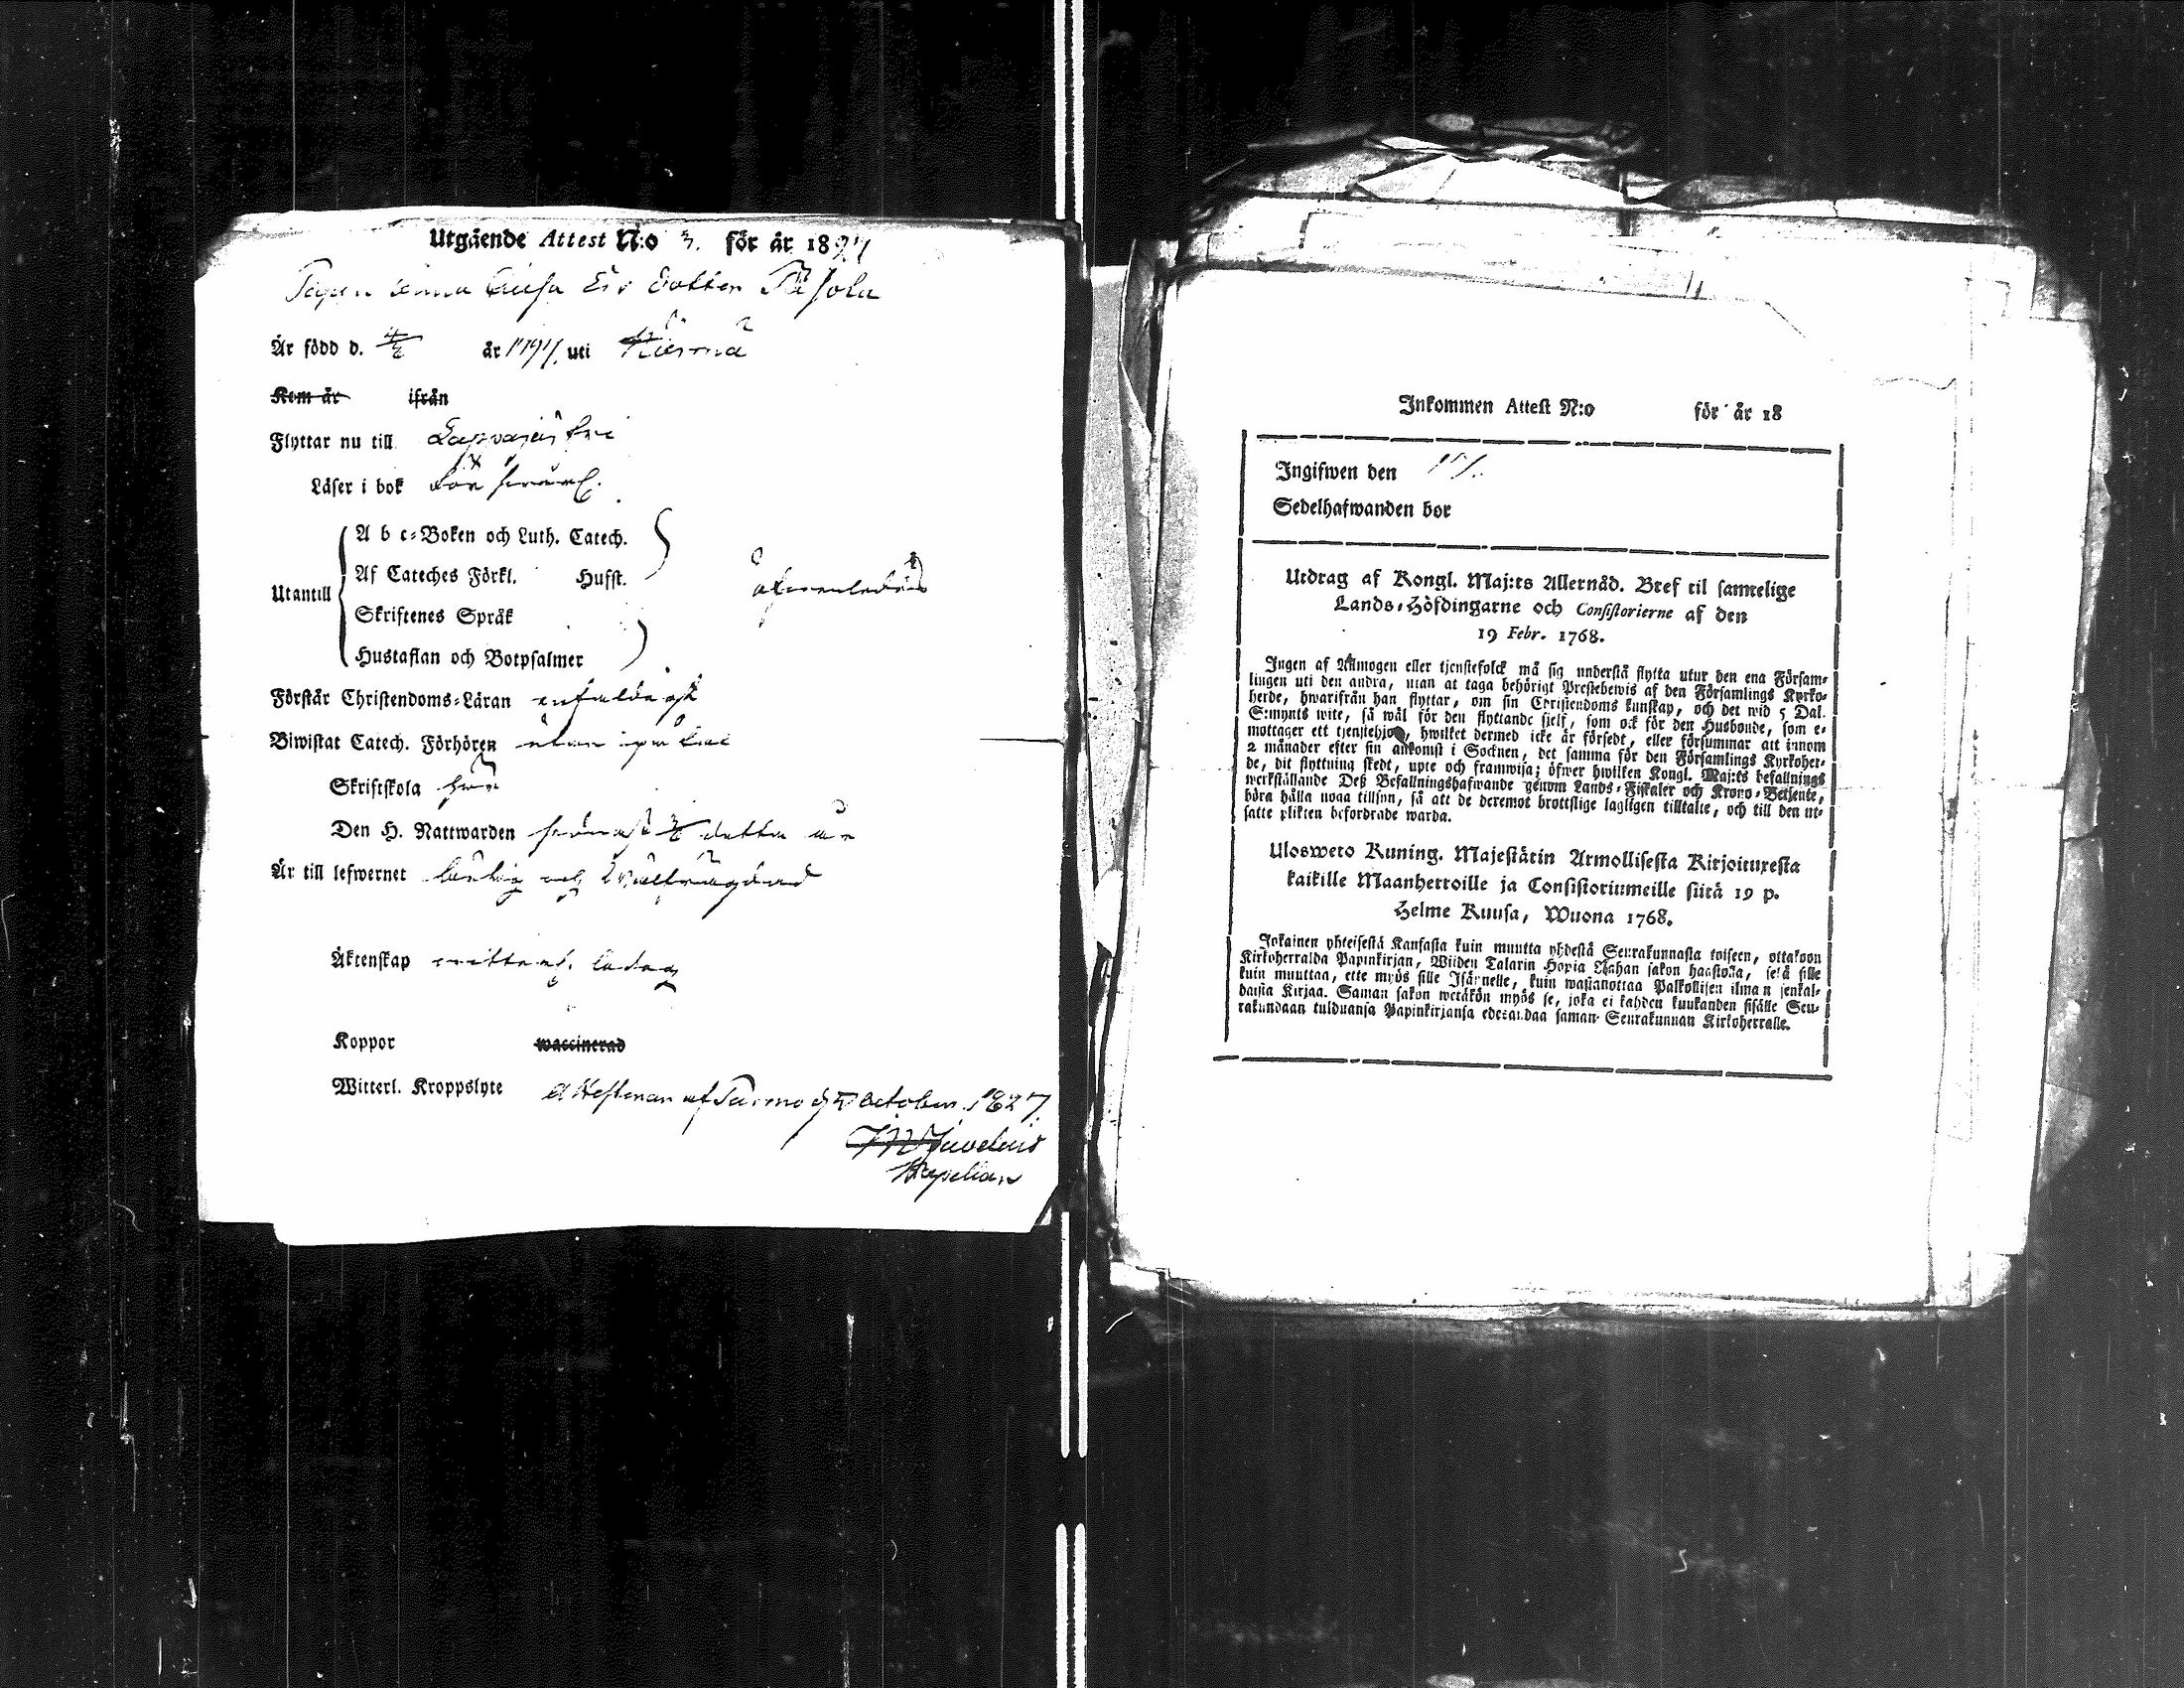 Utgående Attest N:o 3. för år 1827
Pigan Anna Caisa dotter
Är född d. år 1797. uti
Kom år ifrån
Flyttar nu till Lappajärvi
Läser i bok
A b c-Boken och Luth. Catech.
Af Cateches Förkl. Husst.
Utantill
Skriftenes Språk
Hustaflan och Botpsalmer
Förstår Christendoms-Läran enfaldigt
Biwistat Catech. Förhören
Skriftskola
Den H. Nattwarden detta år
Är till lefwernet och wälfrägdad
Äktenskap ledig
Koppor waccinerad
Witterl. Kroppslyte Attesterar af Purmo d. 5 October 1827.
Capellan
Inkommen Attest N:o för år 18
Ingifwen den
Sedelhafwanden bor
Utdrag af Kongl. Maj:ts Allernåd. Bref til samtelige
Lands-Höfdingarne och Consistorierne af den
19 Febr. 1768.
Ingen af Allmogen eller tjenstefolck må sig understå flytta utur den ena Försam-
lingen uti den andra, utan at taga behörigt Prestebewis af den Församlings Kyrko-
herde, hwarifrån han flyttar, om sin Christendoms kunskap, och det wid 5 Dal.
S:mynts wite, så wäl för den flyttande sjelf, som ock för den Husbonde, som e-
mottager ett tjenstehjon, hwilket dermed icke är försedt, eller försummar att innom
2 månader efter sin ankomst i Socknen, det samma för den Församlings Kyrkoher-
de, dit flyttning skedt, upte och framwisa; öfwer hwilken Kongl. Maj:ts befallnings
werkställande Deß Befallningshafwande genom Lands-Fiskaler och Krono-Betjente,
böra hålla noga tillsyn, så att de deremot brottslige lagligen tilltalte, och till den ut-
satte plikten befordrade warda.
Ulosweto Kuning. Majestätin Armollisesta Kirjoituxesta
kaikille Maanherroille ja Consistoriumeille siitä 19 p.
Helme Kuusa, Wuona 1768.
Jokainen yhteisestä Kansasta kuin muutta yhdestä Seurakunnasta toiseen, ottakoon
Kirkoherralda Papinkirjan, Wiiden Talarin Hopia Rahan sakon haastolla, sekä sille
kuin muuttaa, ette myös sille Isännelle, kuin wastanottaa Palkollisen ilman senkal-
daista Kirjaa. Saman sakon wetäkön myös se, joka ei kahden kuukanden sisälle Seu-
rakundaan tulduansa Papinkirjansa edesandaa saman Seurakunnan Kirkoherralle.